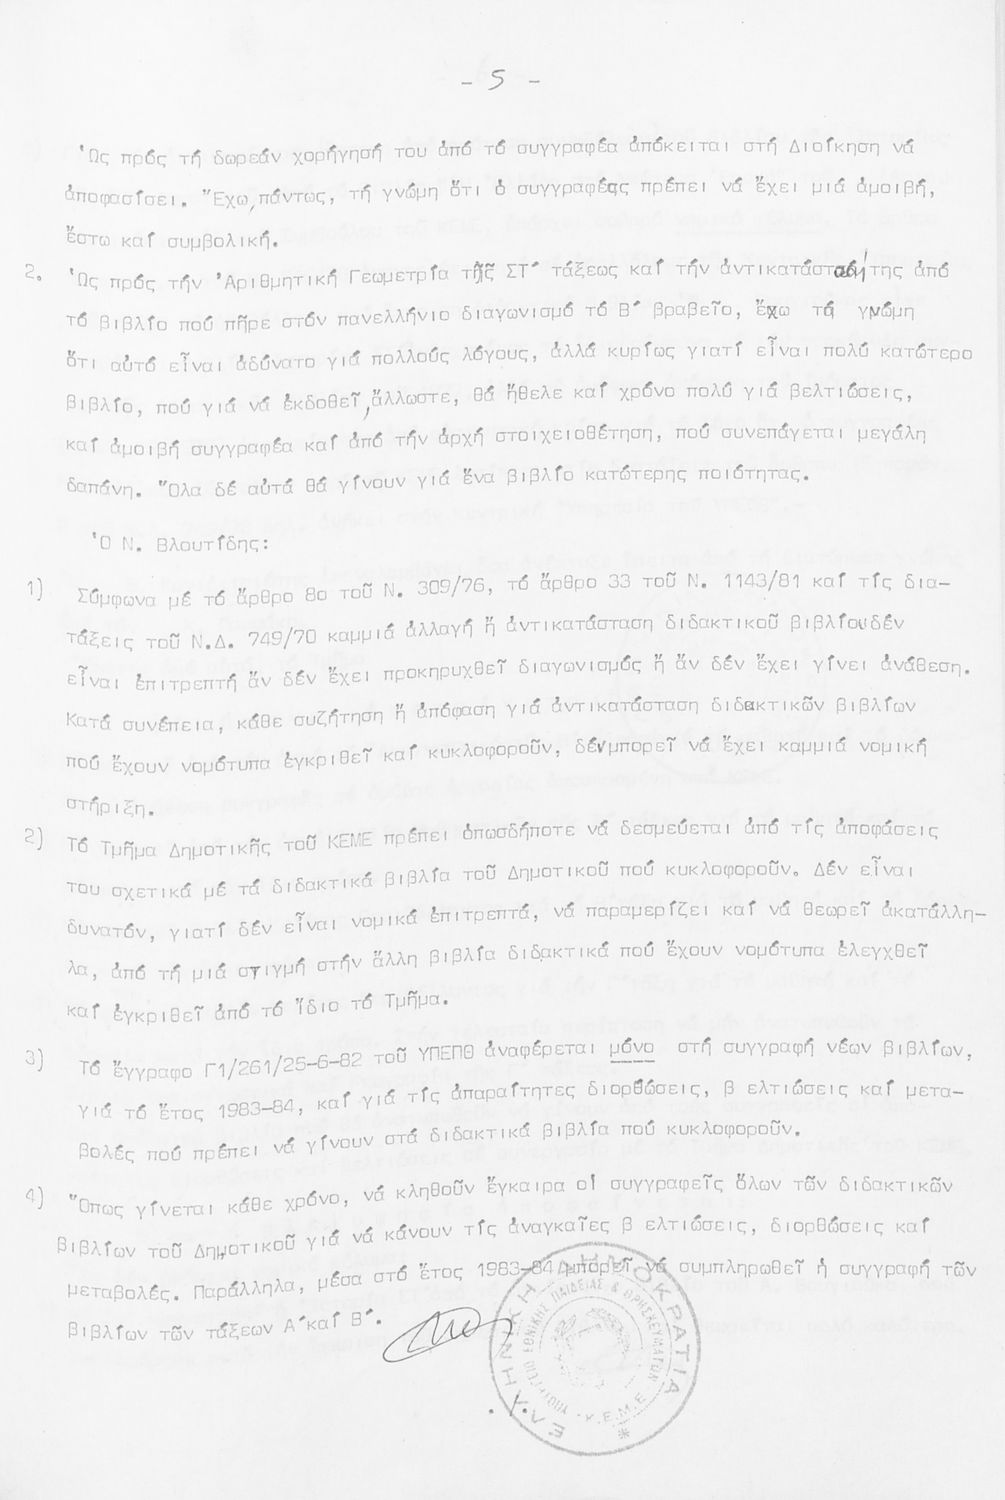 - 5 -
Ὡς πρός τή δωρεάν χορήγησή του ἀπό τό συγγραφέα ἀπόκειται στή Διοίκηση νά
ἀποφασίσει. Ἔχω, πάντως, τή γνώμη ὅτι ὁ συγγραφέας πρέπει νά ἔχει μιά ἀμοιβή,
ἔστω καί συμβολική.
2. Ὡς πρός τήν Ἀριθμητική Γεωμετρία τῆς ΣΤ΄ τάξεως καί τήν ἀντικατάστασή της ἀπό
τό βιβλίο πού πῆρε στόν πανελλήνιο διαγωνισμό τό Β΄ βραβεῖο, ἔχω τή γνώμη
ὅτι αὐτό εἶναι ἀδύνατο γιά πολλούς λόγους, ἀλλά κυρίως γιατί εἶναι πολύ κατώτερο
βιβλίο, πού γιά νά ἐκδοθεῖ, ἄλλωστε, θά ἤθελε καί χρόνο πολύ γιά βελτιώσεις,
καί ἀμοιβή συγγραφέα καί ἀπό τήν ἀρχή στοιχειοθέτηση, πού συνεπάγεται μεγάλη
δαπάνη. Ὅλα δέ αὐτά θά γίνουν γιά ἕνα βιβλίο κατώτερης ποιότητας.
Ὁ Ν. Βλουτίδης:
1) Σύμφωνα μέ τό ἄρθρο 8ο τοῦ Ν. 309/76, τό ἄρθρο 33 τοῦ Ν. 1143/81 καί τίς δια-
τάξεις τοῦ Ν.Δ. 749/70 καμμιά ἀλλαγή ἤ ἀντικατάσταση διδακτικοῦ βιβλίου δέν
εἶναι ἐπιτρεπτή ἄν δέν ἔχει προκηρυχθεῖ διαγωνισμός ἤ ἄν δέν ἔχει γίνει ἀνάθεση.
Κατά συνέπεια, κάθε συζήτηση ἤ ἀπόφαση γιά ἀντικατάσταση διδακτικῶν βιβλίων
πού ἔχουν νομότυπα ἐγκριθεῖ καί κυκλοφοροῦν, δέν μπορεῖ νά ἔχει καμμιά νομική
στήριξη.
2) Τό Τμῆμα Δημοτικῆς τοῦ ΚΕΜΕ πρέπει ὁπωσδήποτε νά δεσμεύεται ἀπό τίς ἀποφάσεις
του σχετικά μέ τά διδακτικά βιβλία τοῦ Δημοτικοῦ πού κυκλοφοροῦν. Δέν εἶναι
δυνατόν, γιατί δέν εἶναι νομικά ἐπιτρεπτά, νά παραμερίζει καί νά θεωρεῖ ἀκατάλλη-
λα, ἀπό τή μιά στιγμή στήν ἄλλη βιβλία διδακτικά πού ἔχουν νομότυπα ἐλεγχθεῖ
καί ἐγκριθεῖ ἀπό τό ἴδιο τό Τμῆμα.
3) Τό ἔγγραφο Γ1/261/25-6-82 τοῦ ΥΠΕΠΘ ἀναφέρεται μόνο στή συγγραφή νέων βιβλίων,
γιά τό ἔτος 1983-84, καί γιά τίς ἀπαραίτητες διορθώσεις, β ελτιώσεις καί μετα-
βολές πού πρέπει νά γίνουν στά διδακτικά βιβλία πού κυκλοφοροῦν.
4) Ὅπως γίνεται κάθε χρόνο, νά κληθοῦν ἔγκαιρα οἱ συγγραφεῖς ὅλων τῶν διδακτικῶν
βιβλίων τοῦ Δημοτικοῦ γιά νά κάνουν τίς ἀναγκαῖες β ελτιώσεις, διορθώσεις καί
μεταβολές. Παράλληλα, μέσα στό ἔτος 1983-84 μπορεῖ νά συμπληρωθεῖ ἡ συγγραφή τῶν
βιβλίων τῶν τάξεων Α΄καί Β΄.
ΕΛΛΗΝΙΚΗ ΔΗΜΟΚΡΑΤΙΑ
ΥΠΟΥΡΓΕΙΟ ΕΘΝΙΚΗΣ ΠΑΙΔΕΙΑΣ & ΘΡΗΣΚΕΥΜΑΤΩΝ
Κ.Ε.Μ.Ε